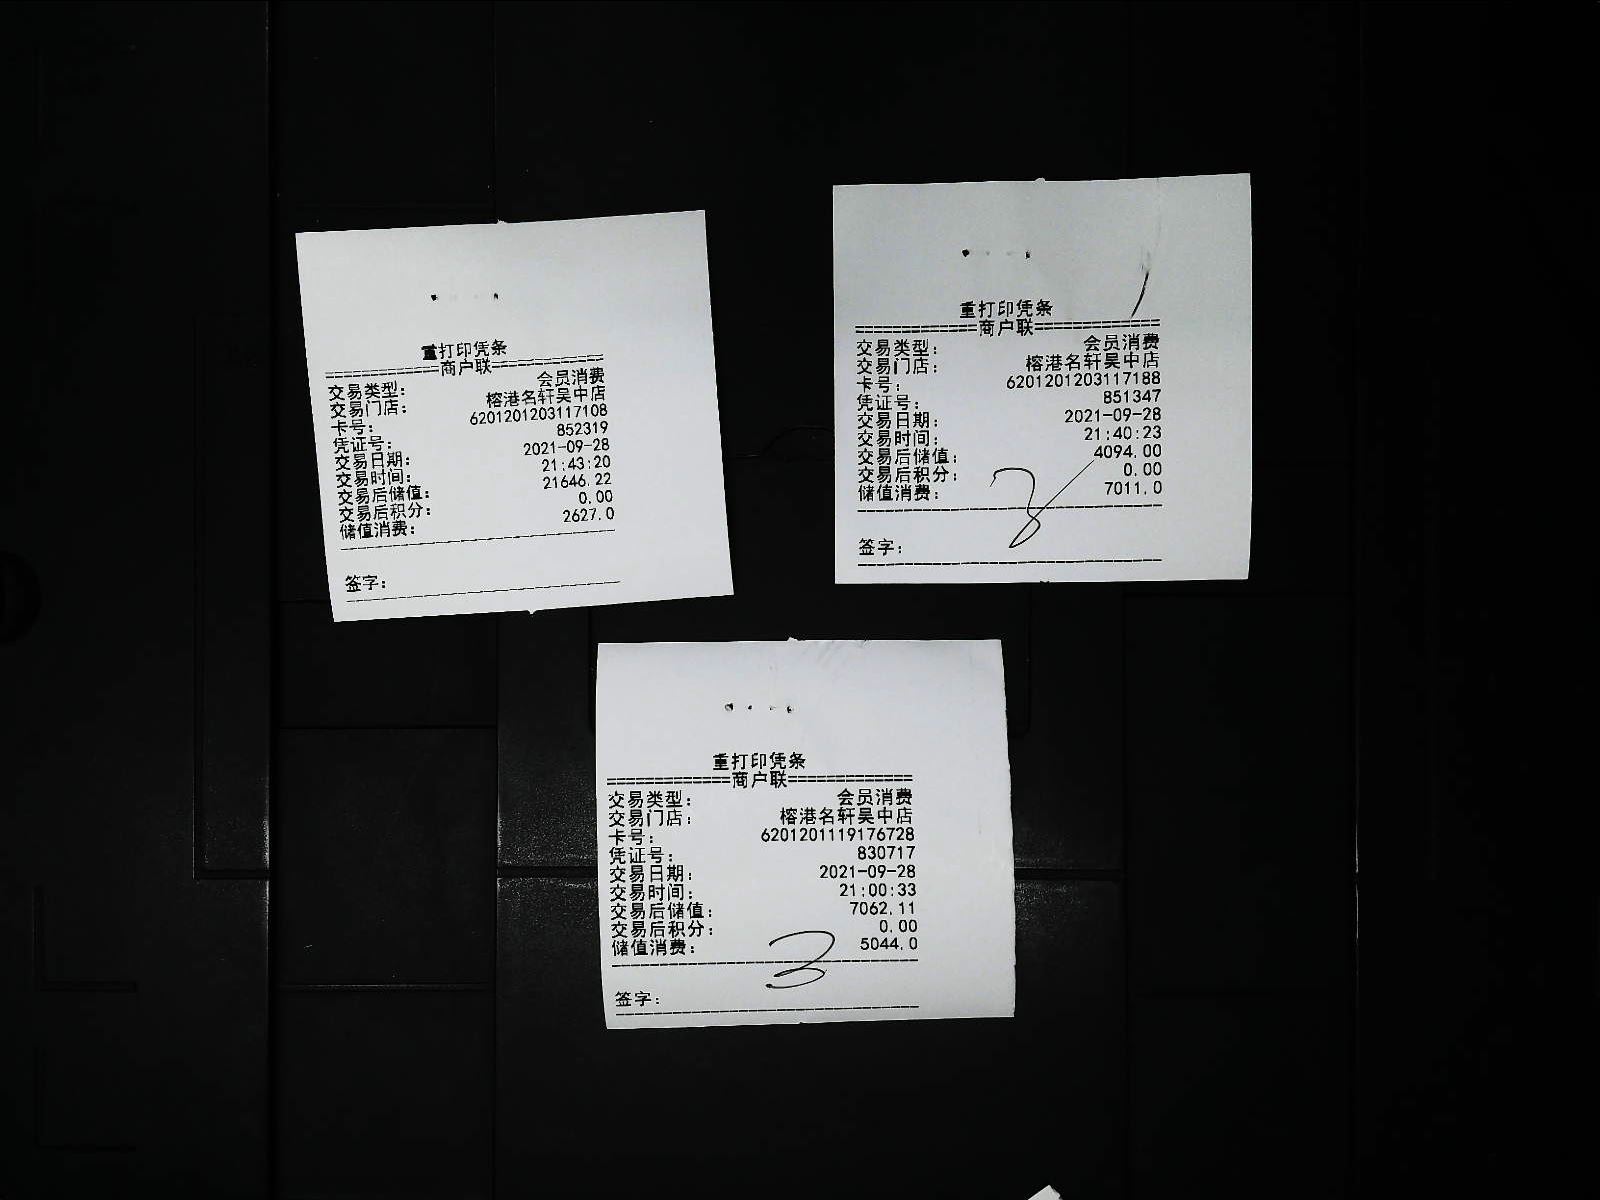 重打印凭条
=============商户联=============
交易类型: 会员消费
交易门店: 榕港名轩吴中店
卡号: 6201201203117108
凭证号: 852319
交易日期: 2021-09-28
交易时间: 21:43:20
交易后储值: 21646.22
交易后积分: 0.00
储值消费: 2627.0
签字:
重打印凭条
=============商户联=============
交易类型: 会员消费
交易门店: 榕港名轩吴中店
卡号: 6201201203117188
凭证号: 851347
交易日期: 2021-09-28
交易时间: 21:40:23
交易后储值: 4094.00
交易后积分: 0.00
储值消费: 7011.0
签字:
重打印凭条
=============商户联=============
交易类型: 会员消费
交易门店: 榕港名轩吴中店
卡号: 6201201119176728
凭证号: 830717
交易日期: 2021-09-28
交易时间: 21:00:33
交易后储值: 7062.11
交易后积分: 0.00
储值消费: 5044.0
3
签字: